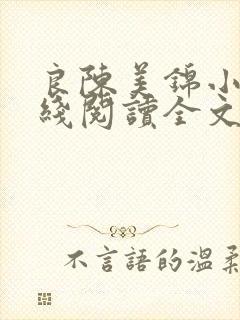 良陳美錦小
綫閱讀全文
不言語的温柔